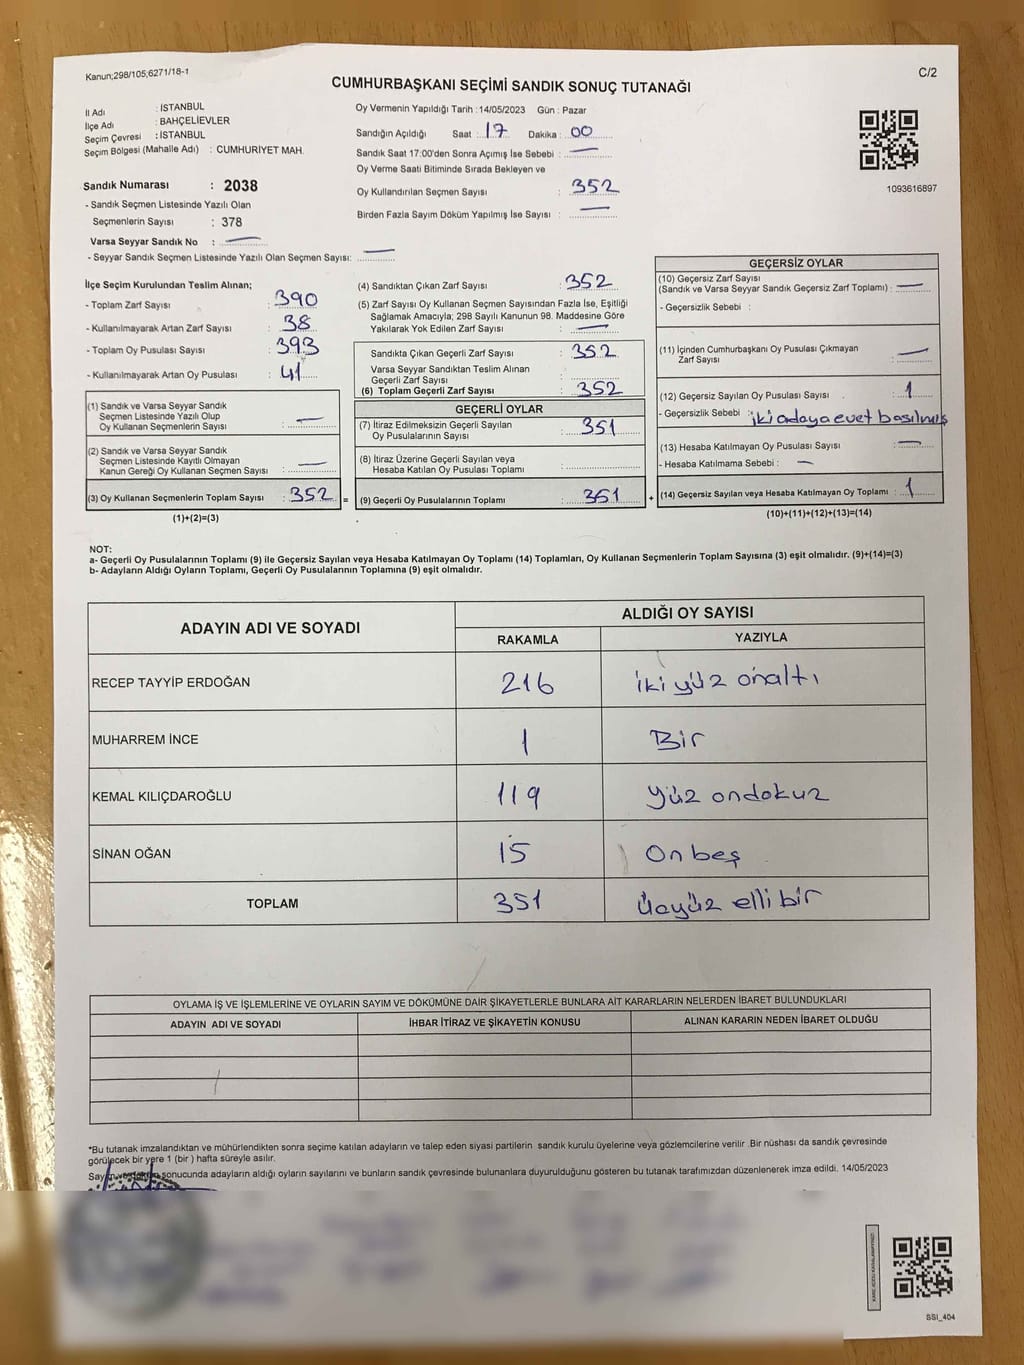 Kanun;298/105;6271/18-1
C/2
CUMHURBAŞKANI SEÇİMİ SANDIK SONUÇ TUTANAĞI
İl Adı : İSTANBUL
İlçe Adı : BAHÇELİEVLER
Seçim Çevresi : İSTANBUL
Seçim Bölgesi (Mahalle Adı) : CUMHURİYET MAH.
Sandık Numarası : 2038
- Sandık Seçmen Listesinde Yazılı Olan
Seçmenlerin Sayısı : 378
Varsa Seyyar Sandık No : —
- Seyyar Sandık Seçmen Listesinde Yazılı Olan Seçmen Sayısı: —
Oy Vermenin Yapıldığı Tarih : 14/05/2023 Gün : Pazar
Sandığın Açıldığı Saat : 17 Dakika : 00
Sandık Saat 17:00'den Sonra Açımış İse Sebebi : —
Oy Verme Saati Bitiminde Sırada Bekleyen ve
Oy Kullandırılan Seçmen Sayısı : 352
Birden Fazla Sayım Döküm Yapılmış İse Sayısı : —
1093616897
İlçe Seçim Kurulundan Teslim Alınan;
- Toplam Zarf Sayısı : 390
- Kullanılmayarak Artan Zarf Sayısı : 38
- Toplam Oy Pusulası Sayısı : 393
- Kullanılmayarak Artan Oy Pusulası : 41
(1) Sandık ve Varsa Seyyar Sandık
Seçmen Listesinde Yazılı Olup
Oy Kullanan Seçmenlerin Sayısı : —
(2) Sandık ve Varsa Seyyar Sandık
Seçmen Listesinde Kayıtlı Olmayan
Kanun Gereği Oy Kullanan Seçmen Sayısı : —
(3) Oy Kullanan Seçmenlerin Toplam Sayısı : 352 =
(1)+(2)=(3)
(4) Sandıktan Çıkan Zarf Sayısı : 352
(5) Zarf Sayısı Oy Kullanan Seçmen Sayısından Fazla İse, Eşitliği
Sağlamak Amacıyla; 298 Sayılı Kanunun 98. Maddesine Göre
Yakılarak Yok Edilen Zarf Sayısı : —
Sandıkta Çıkan Geçerli Zarf Sayısı : 352
Varsa Seyyar Sandıktan Teslim Alınan
Geçerli Zarf Sayısı :
(6) Toplam Geçerli Zarf Sayısı : 352
GEÇERLİ OYLAR
(7) İtiraz Edilmeksizin Geçerli Sayılan
Oy Pusulalarının Sayısı : 351
(8) İtiraz Üzerine Geçerli Sayılan veya
Hesaba Katılan Oy Pusulası Toplamı :
(9) Geçerli Oy Pusulalarının Toplamı : 351 +
GEÇERSİZ OYLAR
(10) Geçersiz Zarf Sayısı
(Sandık ve Varsa Seyyar Sandık Geçersiz Zarf Toplamı) : —
- Geçersizlik Sebebi :
(11) İçinden Cumhurbaşkanı Oy Pusulası Çıkmayan
Zarf Sayısı : —
(12) Geçersiz Sayılan Oy Pusulası Sayısı : 1
- Geçersizlik Sebebi : iki adaya evet basılmış
(13) Hesaba Katılmayan Oy Pusulası Sayısı : —
- Hesaba Katılmama Sebebi : —
(14) Geçersiz Sayılan veya Hesaba Katılmayan Oy Toplamı : 1
(10)+(11)+(12)+(13)=(14)
NOT:
a- Geçerli Oy Pusulalarının Toplamı (9) ile Geçersiz Sayılan veya Hesaba Katılmayan Oy Toplamı (14) Toplamları, Oy Kullanan Seçmenlerin Toplam Sayısına (3) eşit olmalıdır. (9)+(14)=(3)
b- Adayların Aldığı Oyların Toplamı, Geçerli Oy Pusulalarının Toplamına (9) eşit olmalıdır.
ADAYIN ADI VE SOYADI ALDIĞI OY SAYISI
RAKAMLA YAZIYLA
RECEP TAYYİP ERDOĞAN 216 iki yüz onaltı
MUHARREM İNCE 1 Bir
KEMAL KILIÇDAROĞLU 119 yüz ondokuz
SİNAN OĞAN 15 On beş
TOPLAM 351 Üçyüz elli bir
OYLAMA İŞ VE İŞLEMLERİNE VE OYLARIN SAYIM VE DÖKÜMÜNE DAİR ŞİKAYETLERLE BUNLARA AİT KARARLARIN NELERDEN İBARET BULUNDUKLARI
ADAYIN ADI VE SOYADI İHBAR İTİRAZ VE ŞİKAYETİN KONUSU ALINAN KARARIN NEDEN İBARET OLDUĞU
*Bu tutanak imzalandıktan ve mühürlendikten sonra seçime katılan adayların ve talep eden siyasi partilerin sandık kurulu üyelerine veya gözlemcilerine verilir .Bir nüshası da sandık çevresinde
görülecek bir yere 1 (bir ) hafta süreyle asılır.
sonucunda adayların aldığı oyların sayılarını ve bunların sandık çevresinde bulunanlara duyurulduğunu gösteren bu tutanak tarafımızdan düzenlenerek imza edildi. 14/05/2023
SSI_404